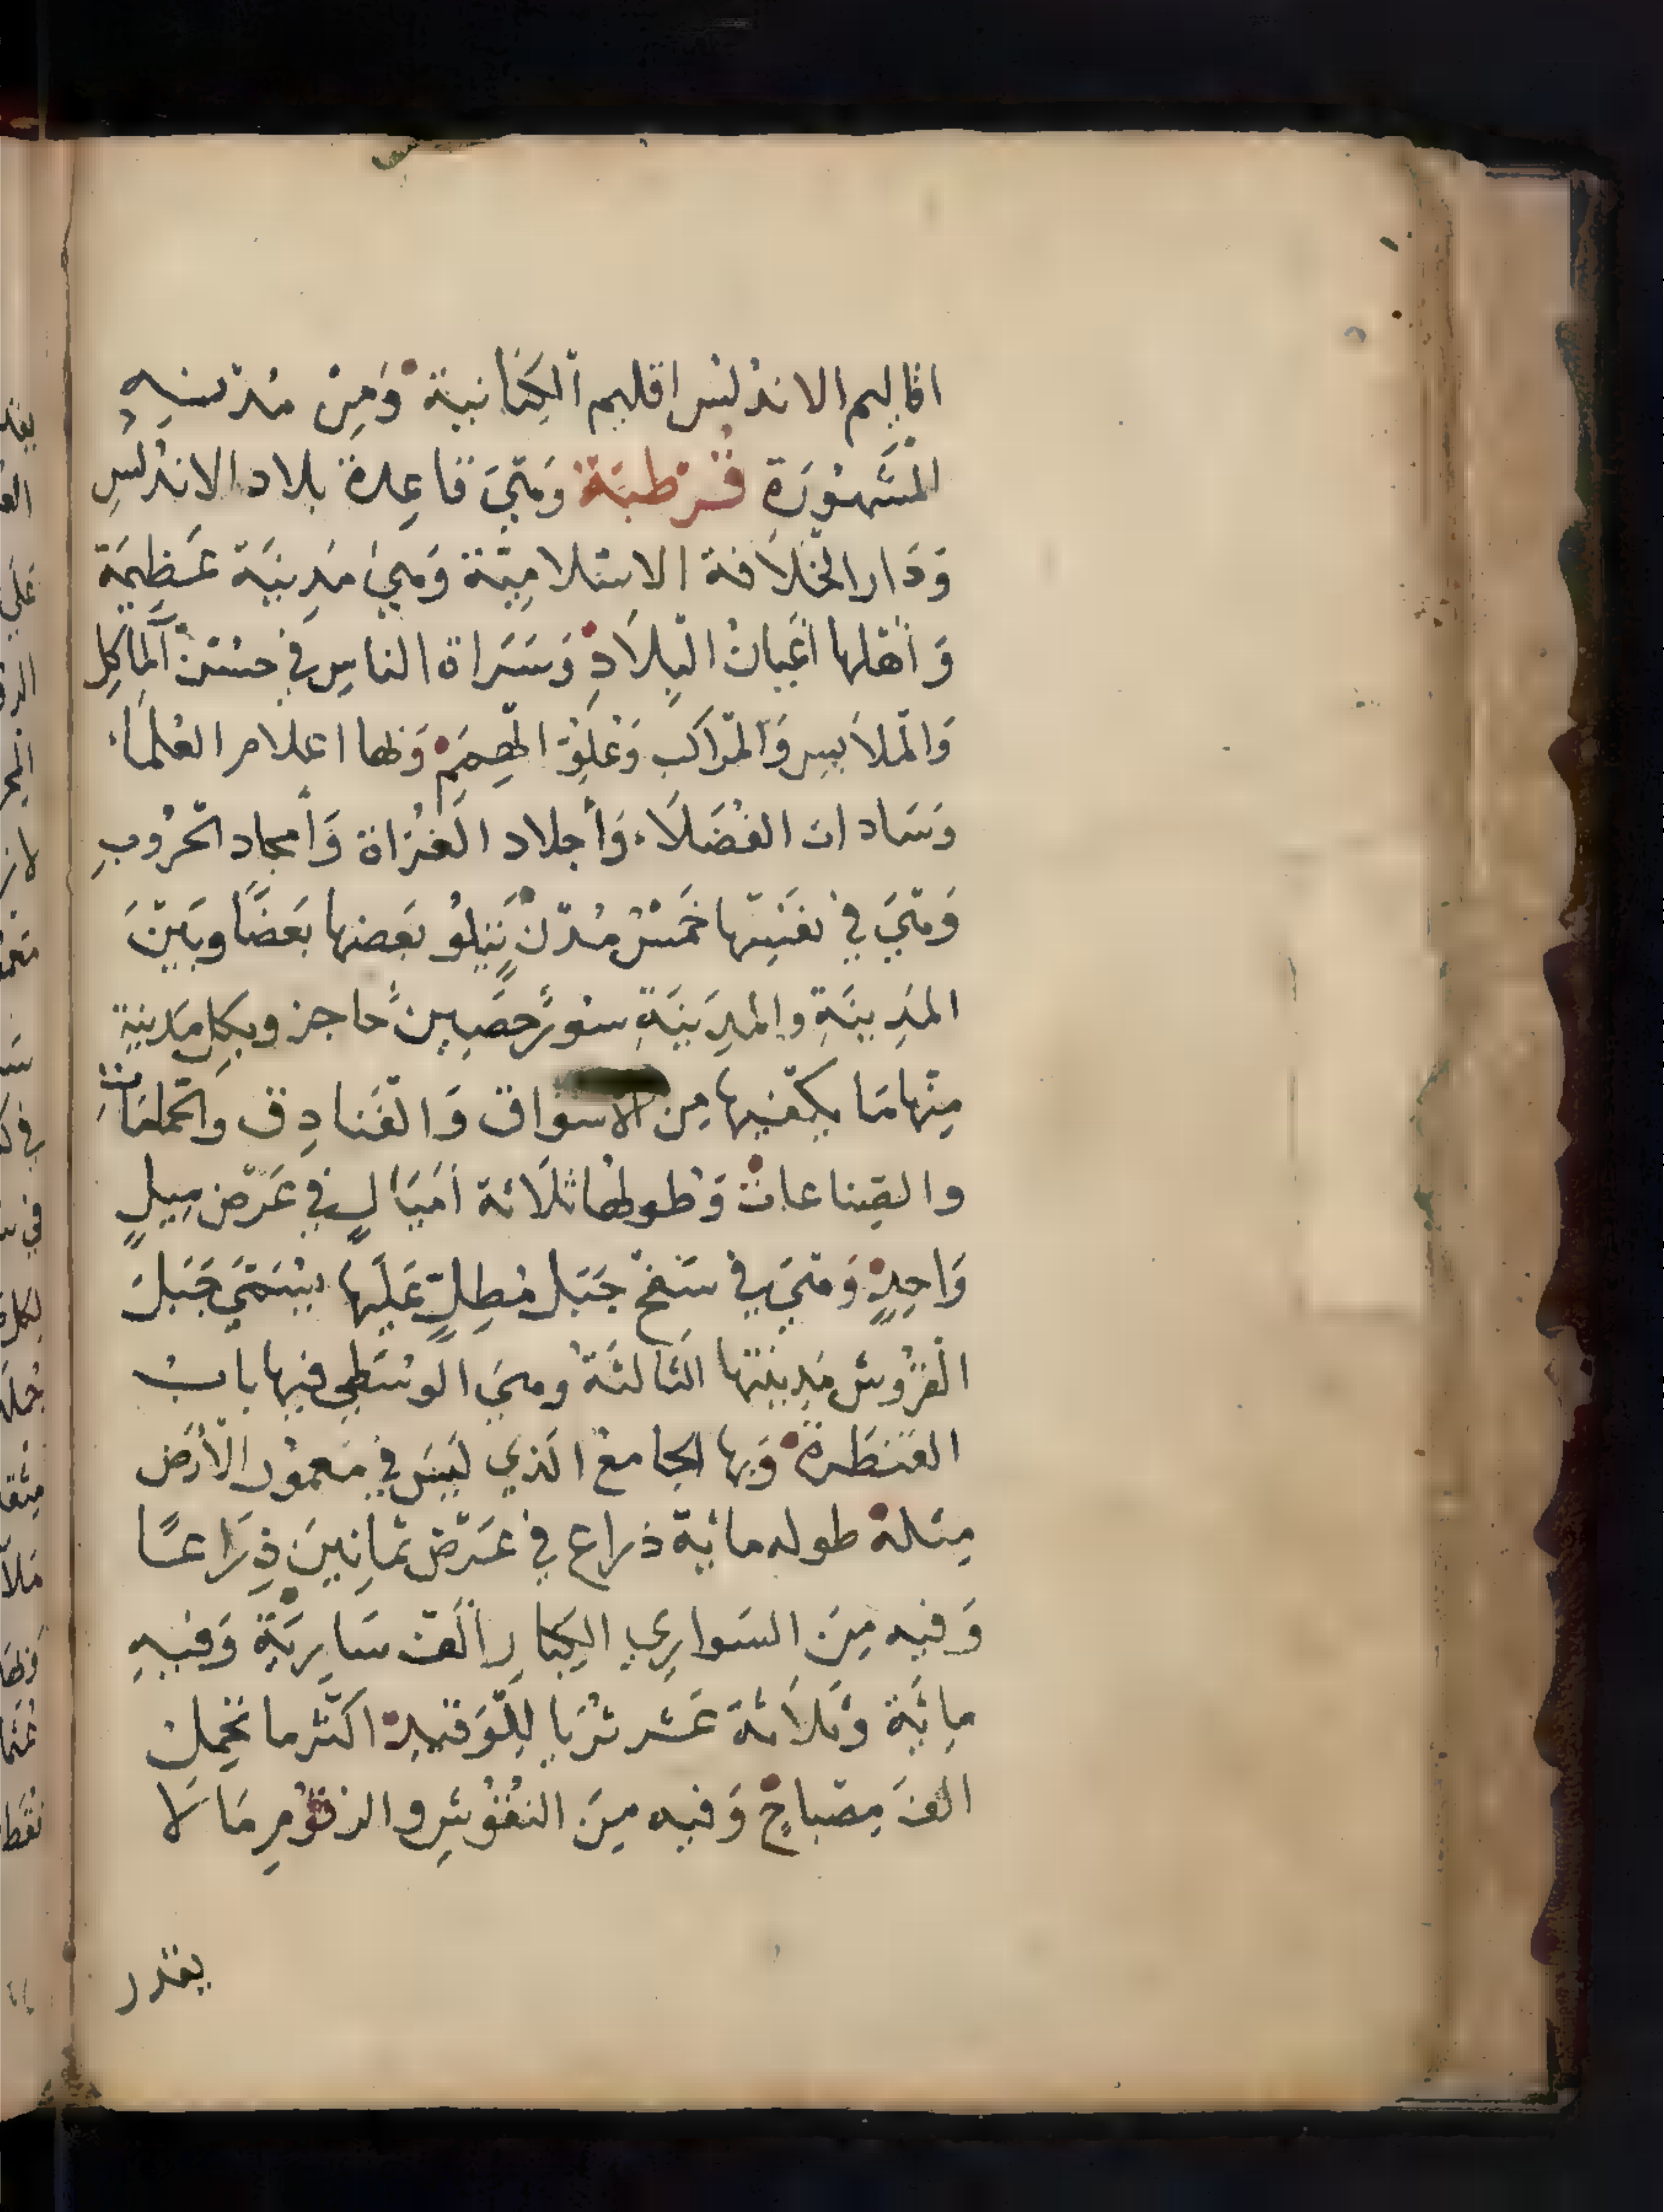 اقاليم الاندلس اقليم الكنانية وَمِنْ مُدُنِهِ
المشَهُورَة قُرطبَة وَهيَ قاعِدة بلاد الاندلسِ
وَدَار الخلَافة الاسْلامِيّة وَهيَ مَدِينَة عَظِيمَة
وَأهْلها أعْيانُ البِلَادِ وَسَرَاة الناسِ في حسْن المآكلِ
وَالملَابسِ وَالمرَاكب وَعُلوّ الهِمَمِ وَلها اعلام العُلَماء
وَسَادات الفُضَلَاء وَأجلاد الغُزاة وَأمجاد الحُرُوبِ
وَهيَ في نفَسِها خمَسُ مُدْن يَتلوُ بَعضها بَعَضًا وبَيْنَ
المدِينَةِ والمدِينَةِ سُورٌ حَصِينٌ حَاجز وبكلِ مَدينةٍ
مِنْها مَا يكفيها مِن الأسْوَاق وَالفَنادِق والحمامَاتِ
والصِناعات وَطولها ثلَاثة أمْيَالٍ في عَرْض مِيلٍ
وَاحِدٍ وَهيَ في سَفح جَبَل مُطِلٍّ عَليها يُسَمَّى جَبَلَ
العَرُوس مَدِينتها الثالثَةُ وهيَ الوسْطى فيها بابُ
القَنطَرة وَبها الجامعُ الذي ليسَ في مَعمُور الأرْض
مِثله طوله مائة ذراع في عَرْض ثمانِينَ ذِرَاعًا
وَفيه مِنَ السَوارِي الكِبارِ ألف سَارِيَة وَفيهِ
مِائَة وَثلَاثة عَشر ثُرَيا لِلوَقيدِ اكثر ما تحمِل
الفَ مِصْباحٍ وَفيه مِنَ النقُوشِ والرقُومِ مَا لَا
يقدر